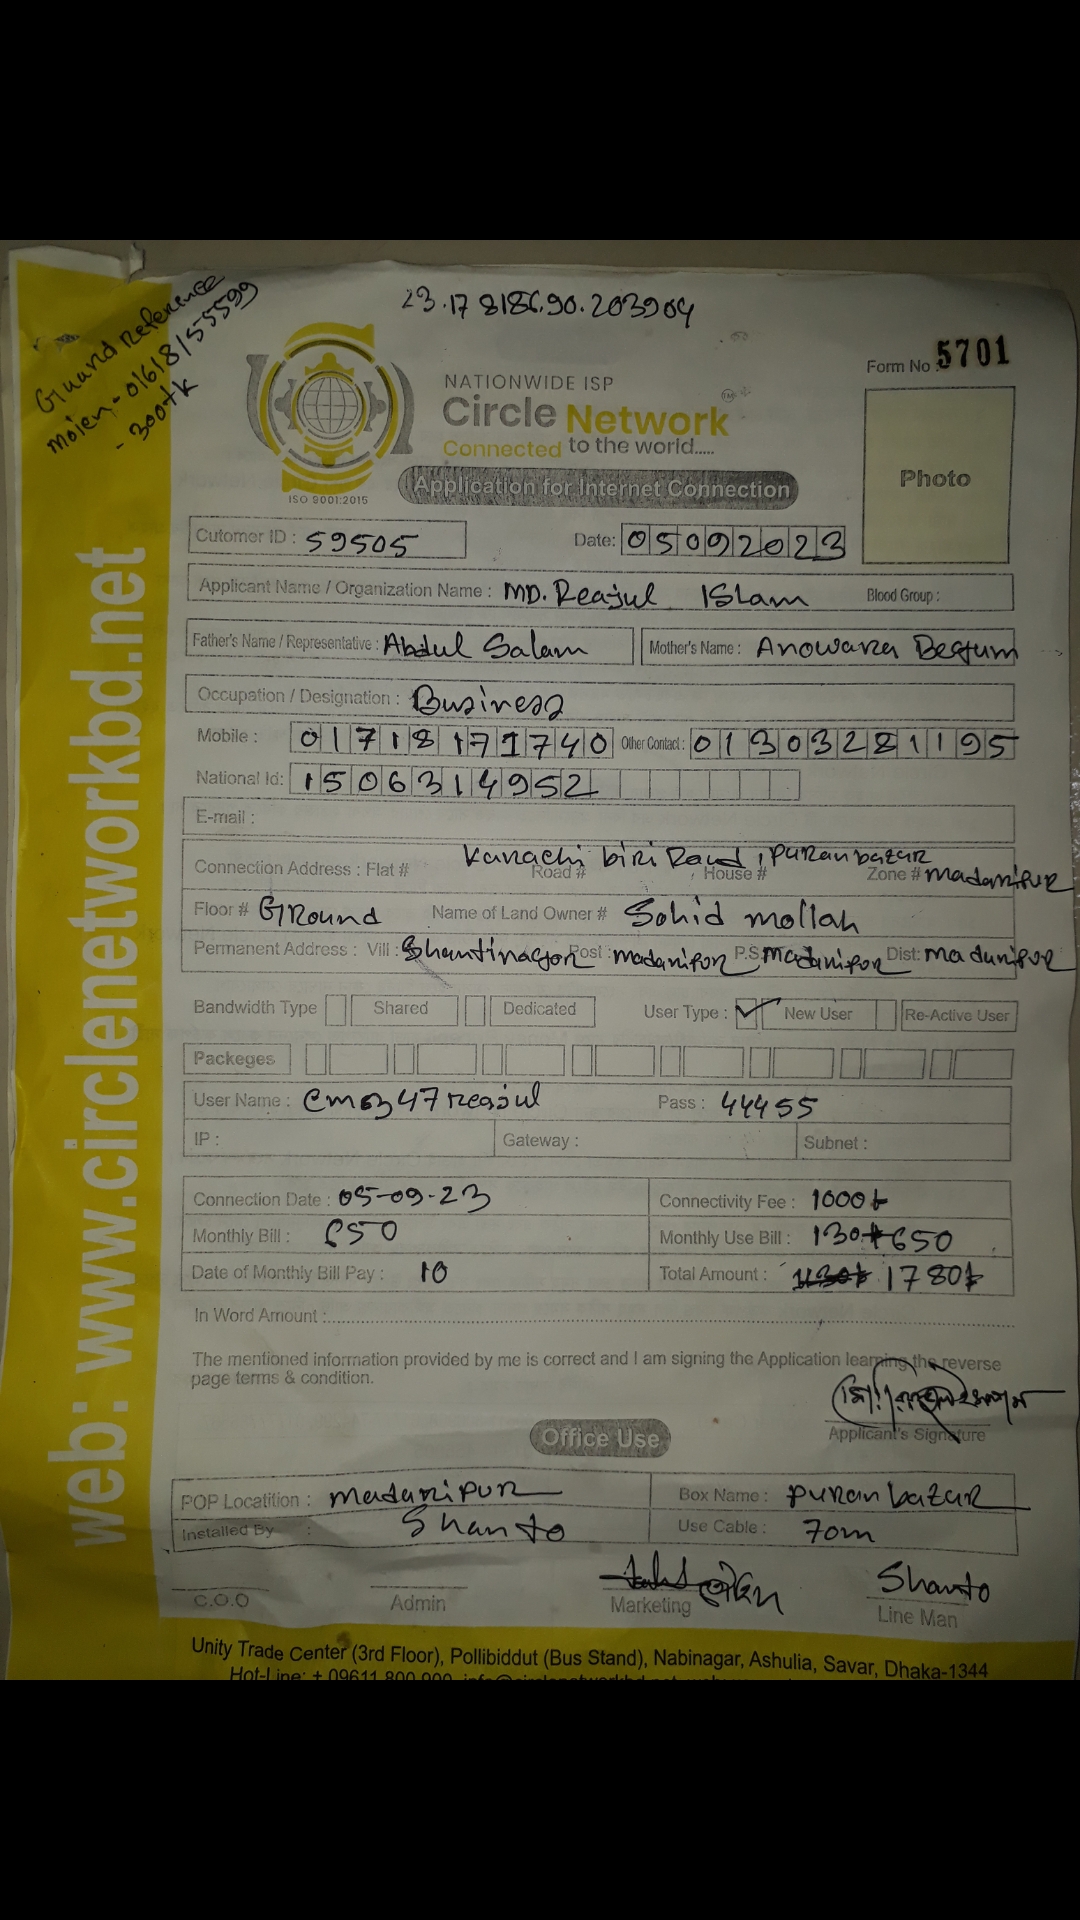 Guard reference
moien - 01618155599
- 300tk
23.17 8186.90.203904
Form No : 5701
NATIONWIDE ISP
Circle Network
Connected to the world.....
ISO 9001:2015
Application for Internet Connection
Photo
Cutomer ID : 59505 Date: 05092023
Applicant Name / Organization Name : MD. Reajul Islam Blood Group :
Father's Name / Representative : Abdul Salam Mother's Name : Anowara Begum
Occupation / Designation : Business
Mobile : 01718171740 Other Contact : 01303281195
National Id: 1506314952
E-mail :
Connection Address : Flat # Karachi biri Road, puran bazar Road # House # Zone # madaripur
Floor # GRound Name of Land Owner # Sohid mollah
Permanent Address : Vill : Shantinagor Post : madaripor P.S. Madaripor Dist: madaripur
Bandwidth Type Shared Dedicated User Type : ✓ New User Re-Active User
Packeges
User Name : Pass : 44455
IP : Gateway : Subnet :
Connection Date : 05-09-23 Connectivity Fee : 1000৳
Monthly Bill : 650 Monthly Use Bill : 130+650
Date of Monthly Bill Pay : 10 Total Amount : 1780৳
In Word Amount :
The mentioned information provided by me is correct and I am signing the Application learning the reverse
page terms & condition.
Applicant's Signature
Office Use
POP Locatition : madaripur Box Name : puran bazar
Installed By : Shanto Use Cable : 70m
Shanto
C.O.O Admin Marketing Line Man
Unity Trade Center (3rd Floor), Pollibiddut (Bus Stand), Nabinagar, Ashulia, Savar, Dhaka-1344
Hot-Line: + 09611 800 900
web: www.circlenetworkbd.net